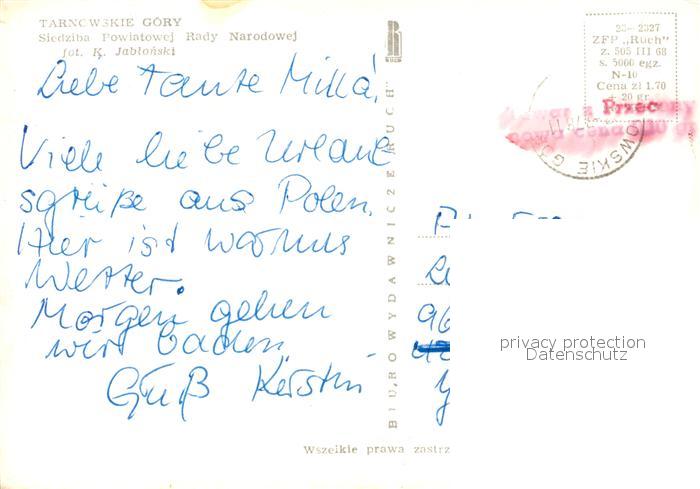 TARNOWSKIE GÓRY
Siedziba Powiatowej Rady Narodowej
fot. K. Jabłoński
Liebe Tante Milka!
Viele liebe Urlaub
sgrüße aus Polen.
Hier ist warmes
Wetter.
Morgen gehen
wir baden.
Gruß Kerstin
BIURO WYDAWNICZE „RUCH”
ZFP „Ruch”
z. 505 III 68
s. 5000 egz.
N-10
Cena zł 1.70
+ 20 gr
96
privacy protection
Datenschutz
Wszelkie prawa zastrz